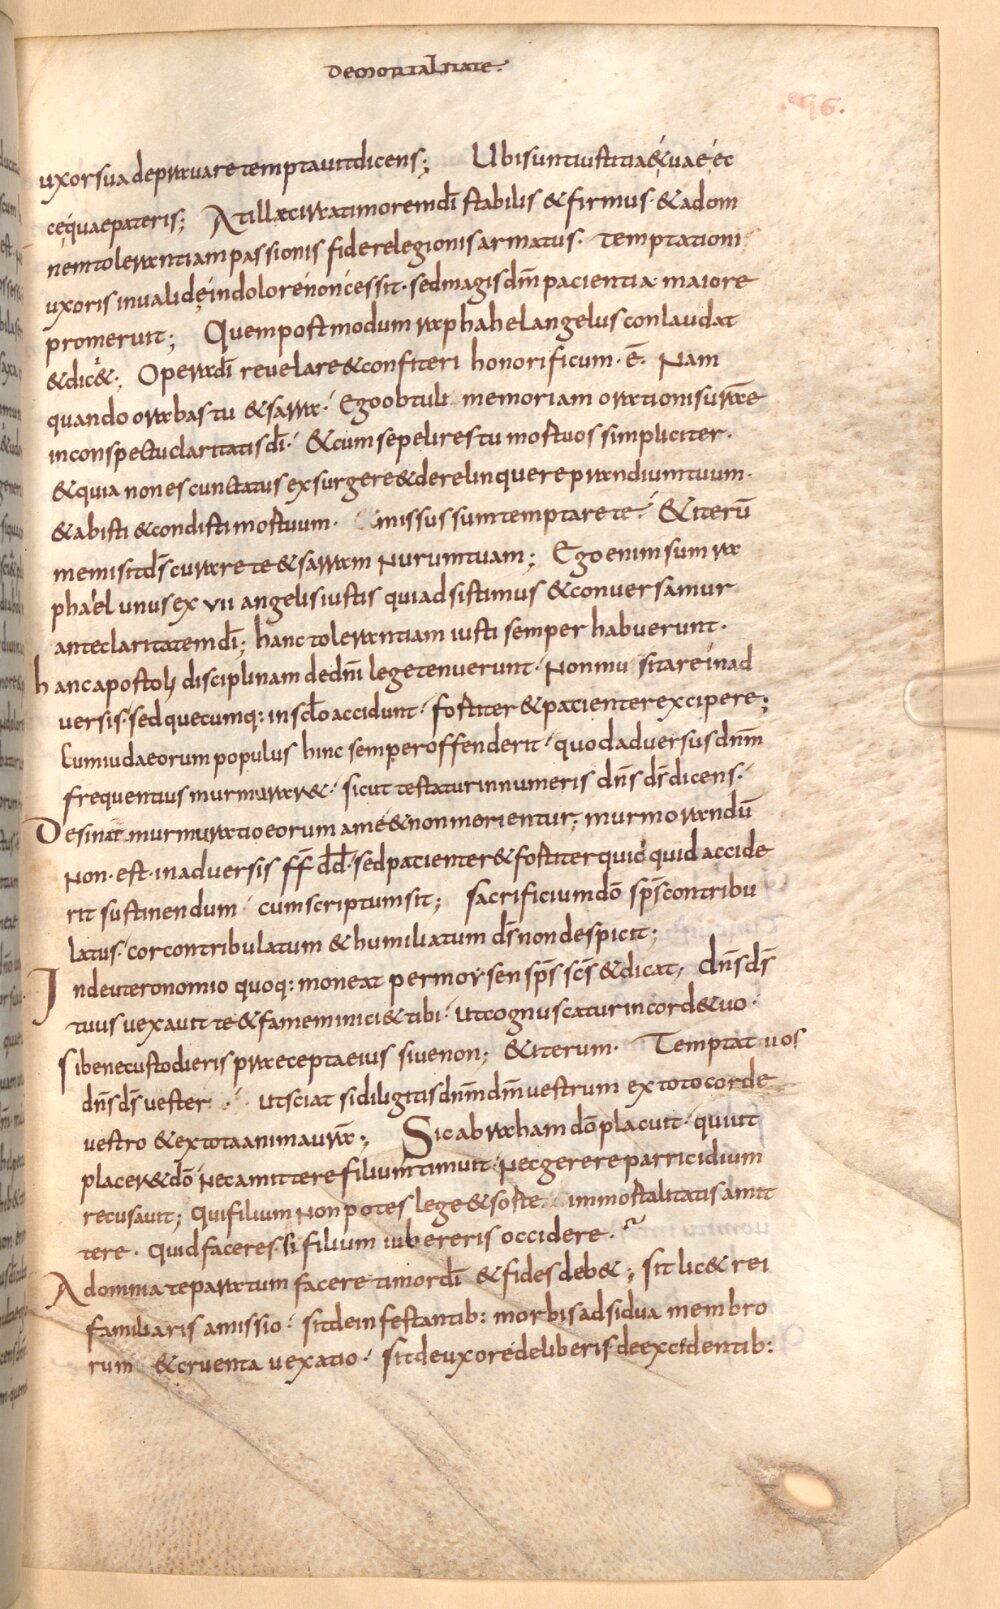 DemorTaLiTaTe.
96.
uxor sua deprauare temptauit dicens; Ubi sunt iustitiae tuae ec
ce quae pateris; At ille circa timorem dī stabilis & firmus · & ad om
nem tolerantiam passionis fide relegionis armatus · Temptationi
uxoris inualide in dolore non cessit · sed magis dm̄ pacientia maiore
promeruit; Quem postmodum raphahel angelus conlaudat
& dic&; Opera dī reuelare & confiteri honorificum · ē · Nam
quando orabas tu & sarra · Ego obtuli memoriam orationis urǣ
in conspectu claritatis dī · & cum sepelires tu mortuos simpliciter ·
& quia non es cunctatus exsurgere & derelinquere prandium tuum ·
& abisti & condisti mortuum · & missus sum temptare te · & iterū
me misit ds̄ curare te & sarram nurum tuam; Ego enim sum ra
phael unus ex vii angelis iustis qui adsistimus & conuersamur
ante claritatem dī; hanc tolerantiam iusti semper habuerunt ·
hanc apostoli disciplinam de dnī lege tenuerunt · Non mu sitare in ad
uersis · sed quecumq: in scl̄o accidunt · fortiter & pacienter excipere;
Cum iudaeorum populus hinc semper offenderit · quod aduersus dnm̄
frequentius murmurar& · sicut testatur in numeris dns̄ ds̄ dicens ·
Desinat murmuratio eorum a me & non morientur; murmorandū
Non · est · in aduersis ff̄ dd̄ · sed pacienter & fortiter quid quid accide
rit sustinendum · cum scriptum sit; sacrificium dō sps̄ contribu
latus · cor contribulatum & humiliatum ds̄ non despicit;
In deuteronomio quoq: moneat per moysen sps̄ scs̄ & dicat, dns̄ ds̄
tuus uexauit te & famem inici& tibi · ut cognuscatur in cord& uo ·
si bene custodieris præcepta eius siue non; & iterum · Temptat uos
dns̄ ds̄ uester · ut sciat si diligitis dnm̄ dm̄ uestrum ex toto corde
uestro & ex tota anima urǣ; Sic abraham dō placuit · qui ut
placer& dō nec amittere filium timuit · Nec gerere parricidium
recusauit; Qui filium non potes lege & sorte immortalitatis amit
tere · quid faceres · si filium iubereris occidere ·
Ad omnia te paratum facere timor dī & fides deb&; sit lic& rei
familiaris amissio · sit de infestantib: morbis adsidua membro
rum & cruenta uexatio · sit de uxore de liberis de excidentib: